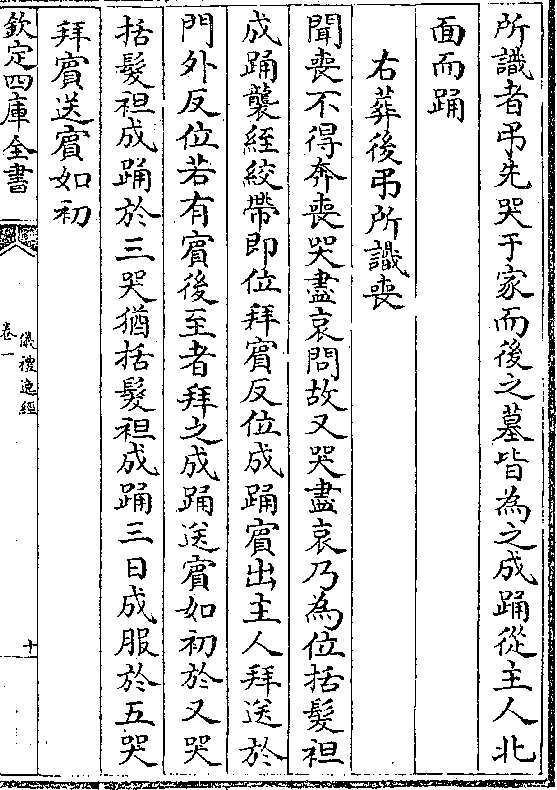 所識者弔先哭于家而後之墓皆為之成踊從主人北
面而踊
右葬後弔所識喪
聞喪不得奔喪哭盡哀問故又哭盡哀乃為位括髮袒
成踊襲絰絞帶即位拜賓反位成踊賓出主人拜送於
門外反位若有賓後至者拜之成踊送賓如初於又哭
括髮袒成踊於三哭猶括髮袒成踊三日成服於五哭
拜賓送賓如初
欽定四庫全書
儀禮逸經
卷一
十